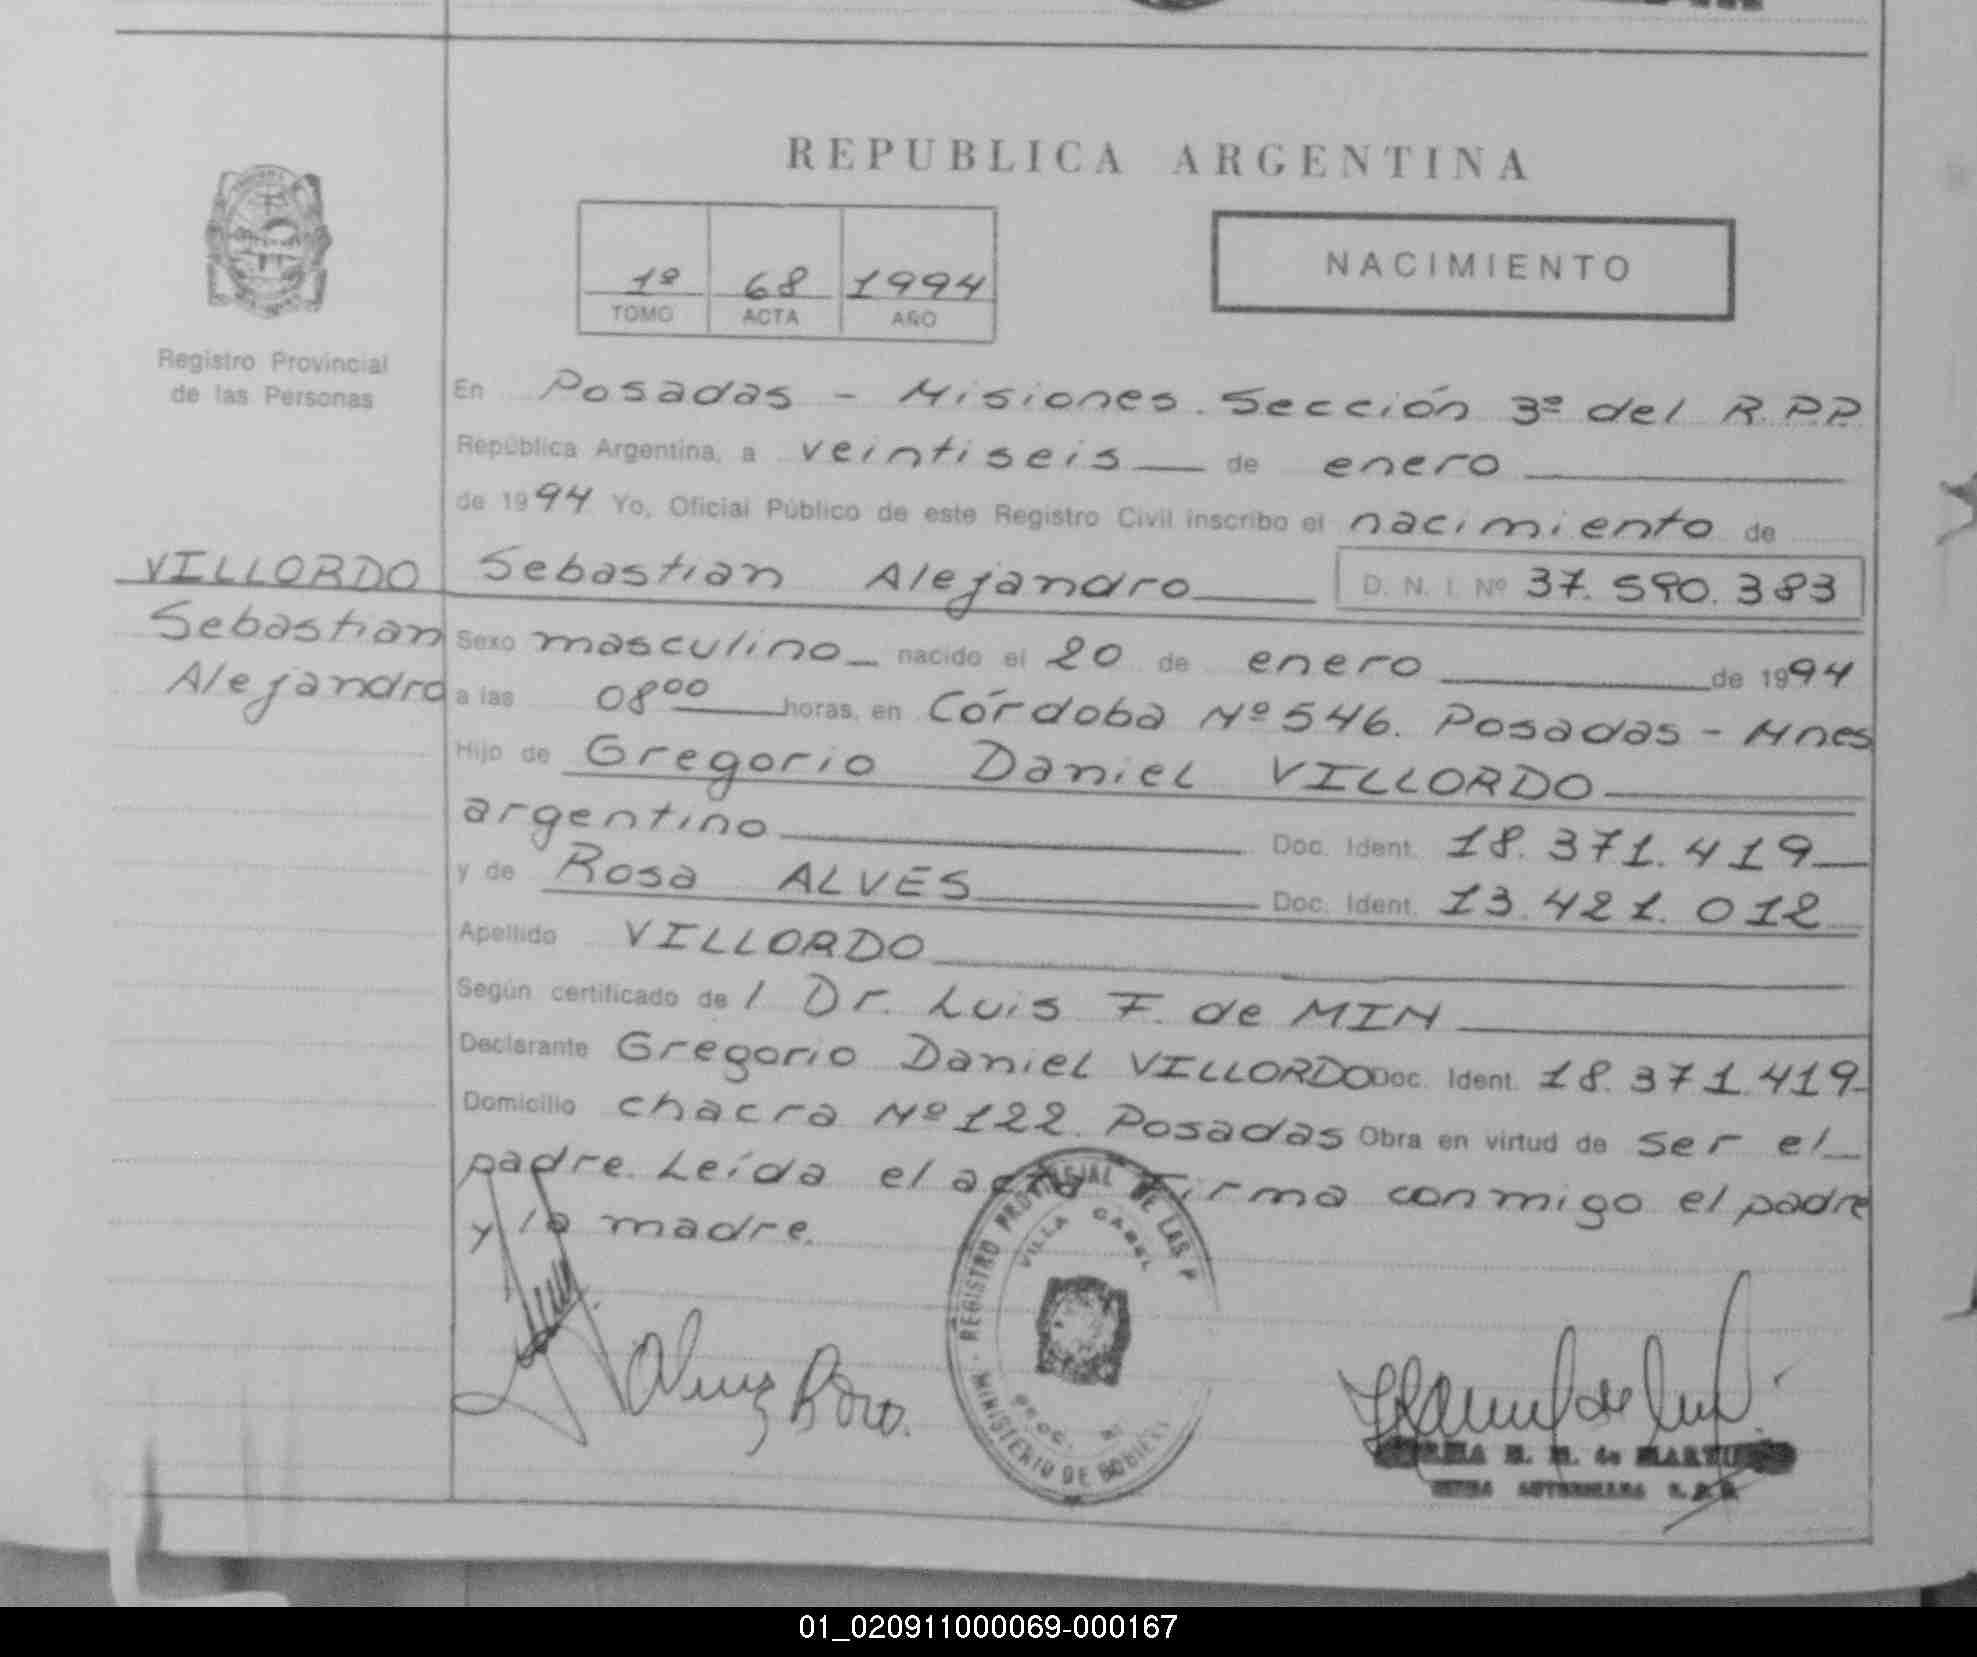 REPUBLICA ARGENTINA
1º 68 1994
TOMO ACTA AÑO
NACIMIENTO
Registro Provincial
de las Personas
En Posadas - Misiones. Sección 3ª del R.P.P.
República Argentina, a veintiseis de enero
de 1994 Yo, Oficial Público de este Registro Civil inscribo el nacimiento de
VILLORDO
Sebastian
Alejandro
Sebastian Alejandro D. N. I. Nº 37.590.383
Sexo masculino nacido el 20 de enero de 1994
a las 08⁰⁰ horas, en Córdoba Nº 546. Posadas - Mnes
Hijo de Gregorio Daniel VILLORDO
argentino Doc. Ident. 18.371.419
y de Rosa ALVES Doc. Ident. 13.421.012
Apellido VILLORDO
Según certificado de / Dr. Luis F. de MIN
Declarante Gregorio Daniel VILLORDO Doc. Ident. 18.371.419
Domicilio chacra Nº 122. Posadas Obra en virtud de ser el
padre. Leída el acta firma conmigo el padre
y la madre.
REGISTRO PROVINCIAL DE LAS P
VILLA CABEL
MINISTERIO DE GOBIERNO
M. M. de
01_020911000069-000167